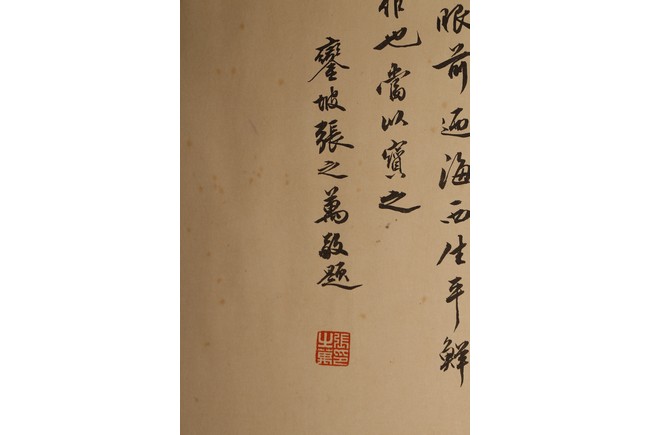 眼前海西生平鮮
也當以寶之
鑾坡張之萬敬題
張印
之萬